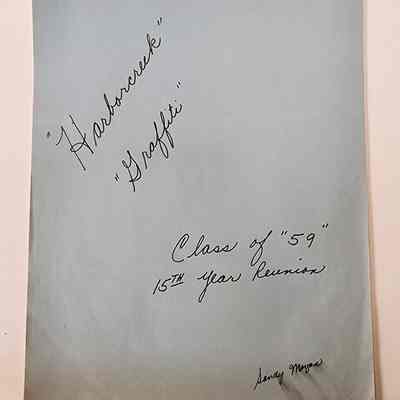 "Harborcreek"
"Graffiti"
Class of "59"
15TH Year Reunion
Sandy